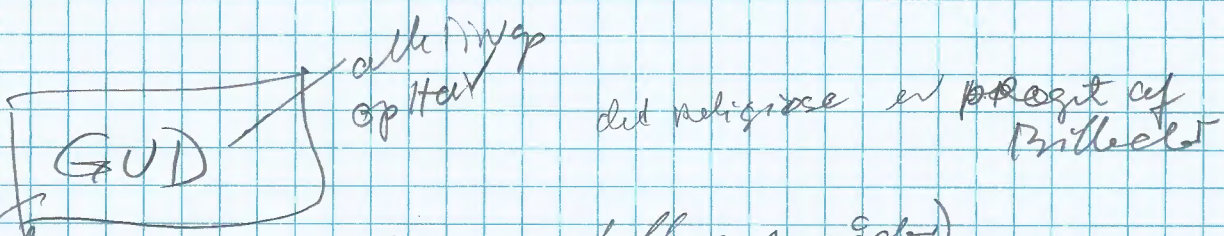 alle tings
ophav
GUD
det religiøse er præget af
Billeder